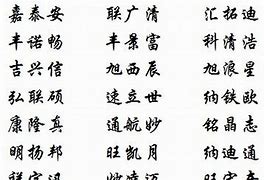 嘉泰安 联广清 汇拓迪
丰诺畅 丰景富 科清浩
吉兴信 旭西辰 旭浪星
弘联硕 速立世 纳铁欧
康隆真 通航妙 铭晶志
明扬邦 旺凯月 明迪通